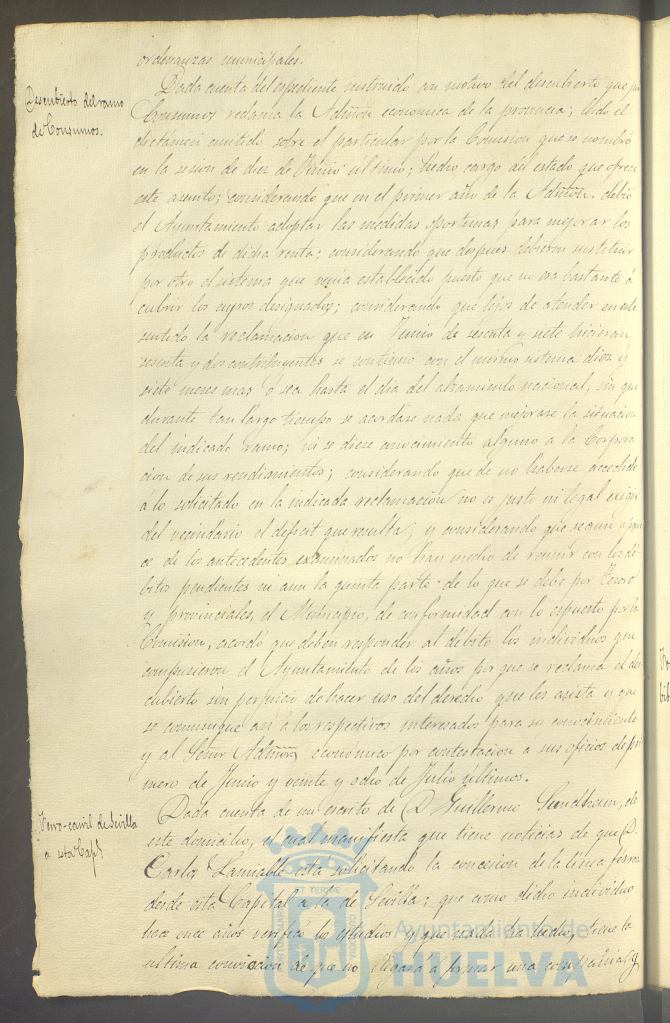 ordenanzas municipales.
Descubierto del ramo
de Consumos.
Dada cuenta del espediente instruido con motivo del descubierto que por
Consumos reclama la Admon economica de la provincia; leido el
dictámen emitido sobre el particular por la Comision que se nombró
en la sesion de diez de Junio ultimo; hecho cargo del estado que ofrece
este asunto; considerando que en el primer año de la Admon. debió
el Ayuntamiento adoptar las medidas oportunas para mejorar los
productos de dicha renta; considerando que despues debieron sustituir
por otro el sistema que venia establecido puesto que no era bastante á
cubrir los cupos designados; considerando que lejos de atender en este
sentido la reclamacion que en Junio de sesenta y siete hicieran
sesenta y dos contribuyentes se continuo con el mismo sistema diez y
siete meses mas ó sea hasta el dia del alzamiento nacional, sin que
durante tan largo tiempo se acordase nada que mejorase la situacion
del indicado ramo; ni se diese conocimiento alguno a la Corpora
cion de sus rendimientos; considerando que de no haberse accedido
á lo solicitado en la indicada reclamacion no es justo ni legal exigir
del vecindario el deficit que resulta; y considerando que segun
de de los antecedentes examinados no hay medio de reunir con los dé
bitos pendientes ni aun la quinta parte de lo que se debe por Tesoro
y provinciales, el Municipio, de conformidad con lo espuesto por la
Comision, acordó que deben responder al débito los individuos que
compusieron el Ayuntamiento de los años por que se reclama el des
cubierto sin perjuicio de hacer uso del derecho que les asista y que
se comunique asi á los respectivos interesados para su conocimiento
y al Señor Admor económico por contestacion á sus oficios de pri
mero de Junio y veinte y ocho de Julio ultimos.
Ferro-carril de Sevilla
a esta Capl
Dada cuenta de un escrito de D. Guillermo Sundheim, de
este domicilio, el cual manifiesta que tiene noticias de que D.
Carlos Lamiable está solicitando la concesion de la linea ferrea
desde esta Capital a la de Sevilla; que como dicho individuo
hace once años verificó los estudios y que nada ha hecho, tiene la
ultima conviccion de que no llegará á formar una compañia, y
Ayuntamiento de
HUELVA